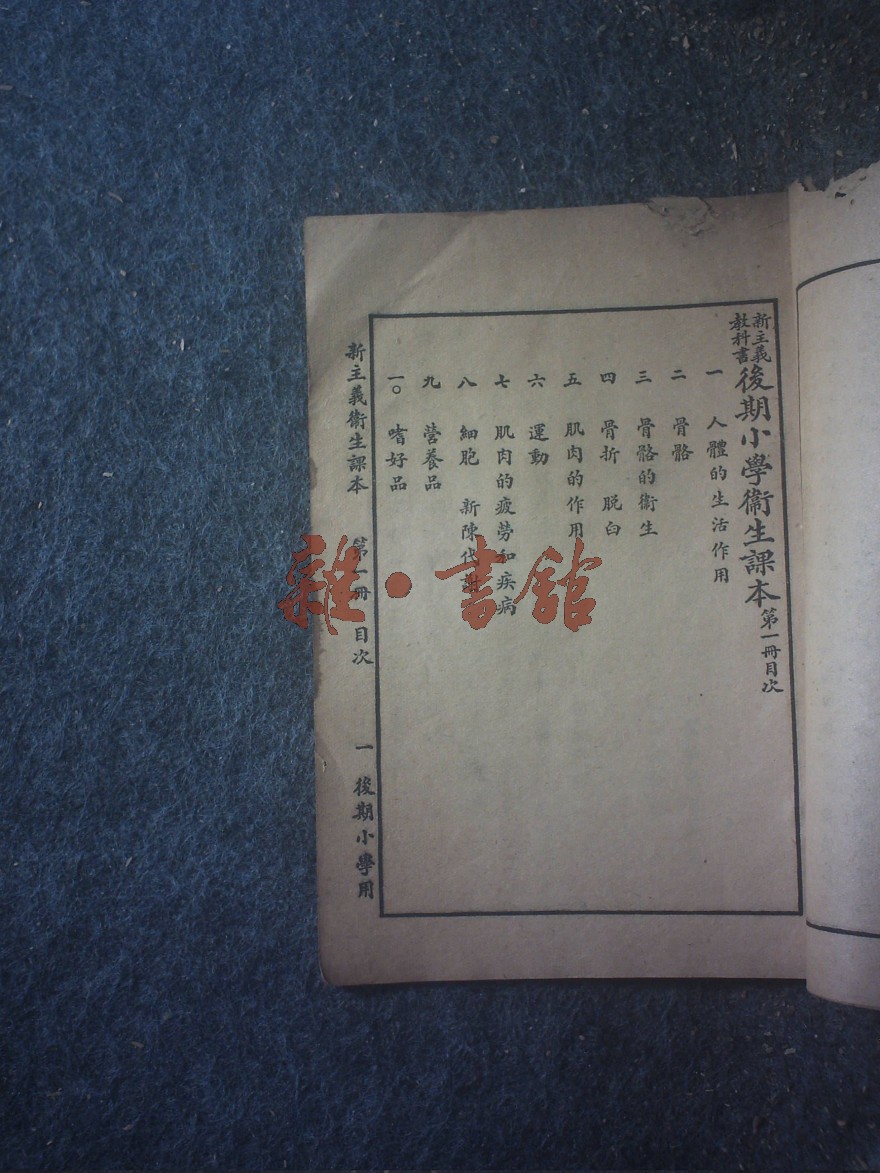 新主義教科書後期小學衞生課本第一冊目次
一 人體的生活作用
二 骨骼
三 骨骼的衞生
四 骨折 脫臼
五 肌肉的作用
六 運動
七 肌肉的疲勞和疾病
八 細胞 新陳代謝
九 營養品
一〇 嗜好品
新主義衞生課本 第一冊 目次 一 後期小學用
雜·書館